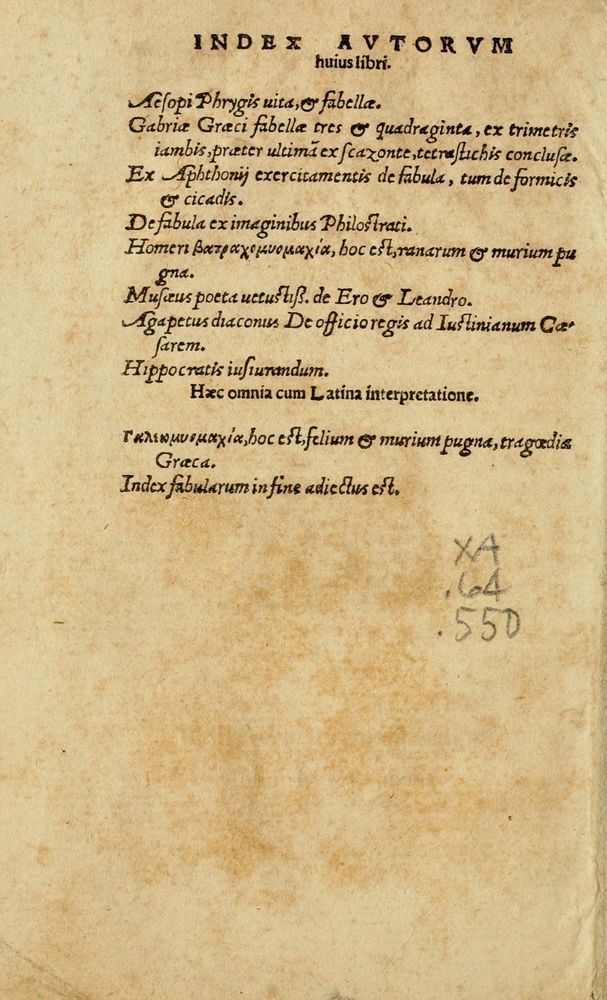 INDEX AVTORVM
huius libri.
Aesopi Phrygis uita, & fabellæ.
Gabriæ Græci fabellæ tres & quadraginta, ex trimetris
iambis, præter ultimã ex scazonte, tetrastichis conclusæ.
Ex Aphthonij exercitamentis de fabula, tum de formicis
& cicadis.
De fabula ex imaginibus Philostrati.
Homeri βατραχομυομαχία, hoc est, ranarum & murium pu
gna.
Musæus poeta uetustiß. de Ero & Leandro.
Agapetus diaconus De officio regis ad Iustinianum Cæ-
sarem.
Hippocratis iusiurandum.
Hæc omnia cum Latina interpretatione.
Γαλεωμυομαχία, hoc est, felium & murium pugna, tragœdia
Græca.
Index fabularum in fine adiectus est.
XA
.64
.550